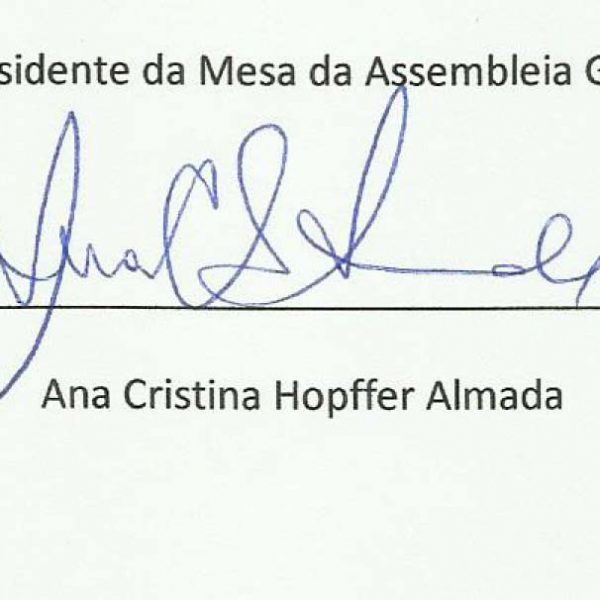 sidente da Mesa da Assembleia G
Ana Cristina Hopffer Almada